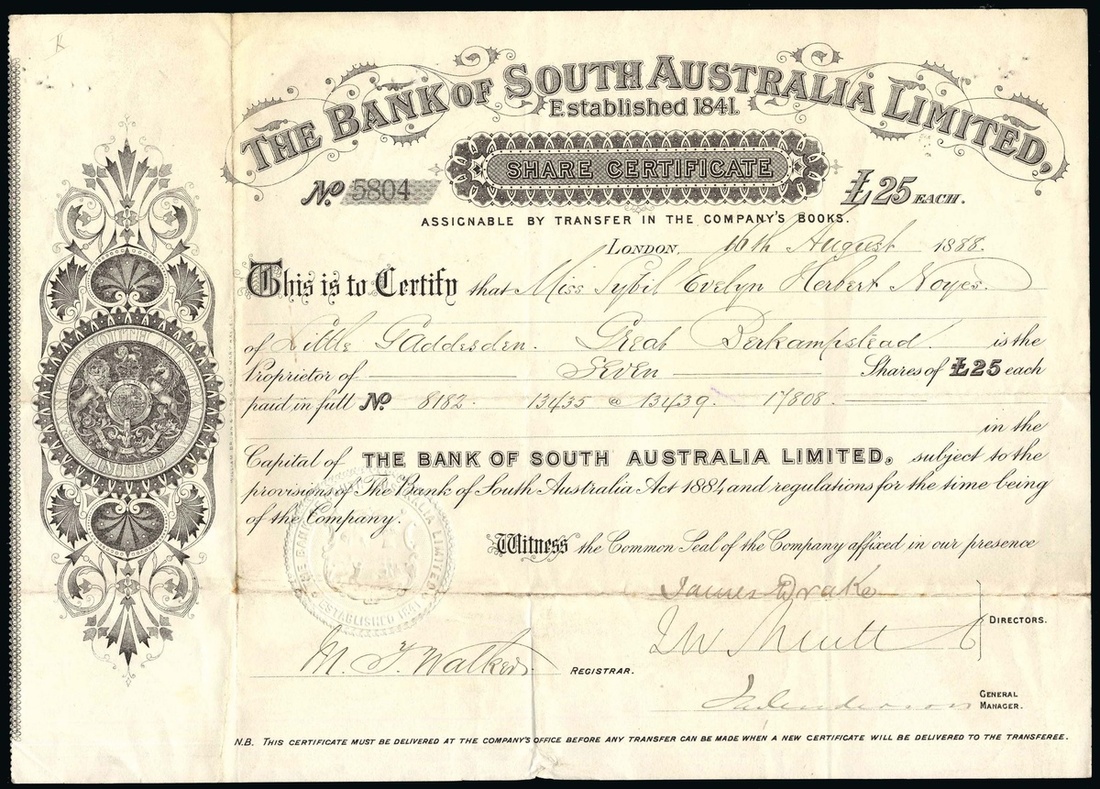 K
THE BANK OF SOUTH AUSTRALIA LIMITED,
Established 1841.
SHARE CERTIFICATE
No 5804
£25 EACH.
ASSIGNABLE BY TRANSFER IN THE COMPANY'S BOOKS.
LONDON, 16th August 1888.
This is to Certify that Miss Sybil Evelyn Herbert Noyes
of Little Gaddesden. Great Berkampstead. is the
Proprietor of Seven Shares of £25 each
paid in full No 8182. 13435 @ 13439. 17808.
in the
Capital of THE BANK OF SOUTH AUSTRALIA LIMITED, subject to the
provisions of The Bank of South Australia Act 1884 and regulations for the time being
of the Company.
Witness the Common Seal of the Company affixed in our presence
THE BANK OF SOUTH AUSTRALIA LIMITED
ESTABLISHED 1841
James Drake
DIRECTORS.
M. F. Walker
REGISTRAR.
GENERAL
MANAGER.
N.B. THIS CERTIFICATE MUST BE DELIVERED AT THE COMPANY'S OFFICE BEFORE ANY TRANSFER CAN BE MADE WHEN A NEW CERTIFICATE WILL BE DELIVERED TO THE TRANSFEREE.